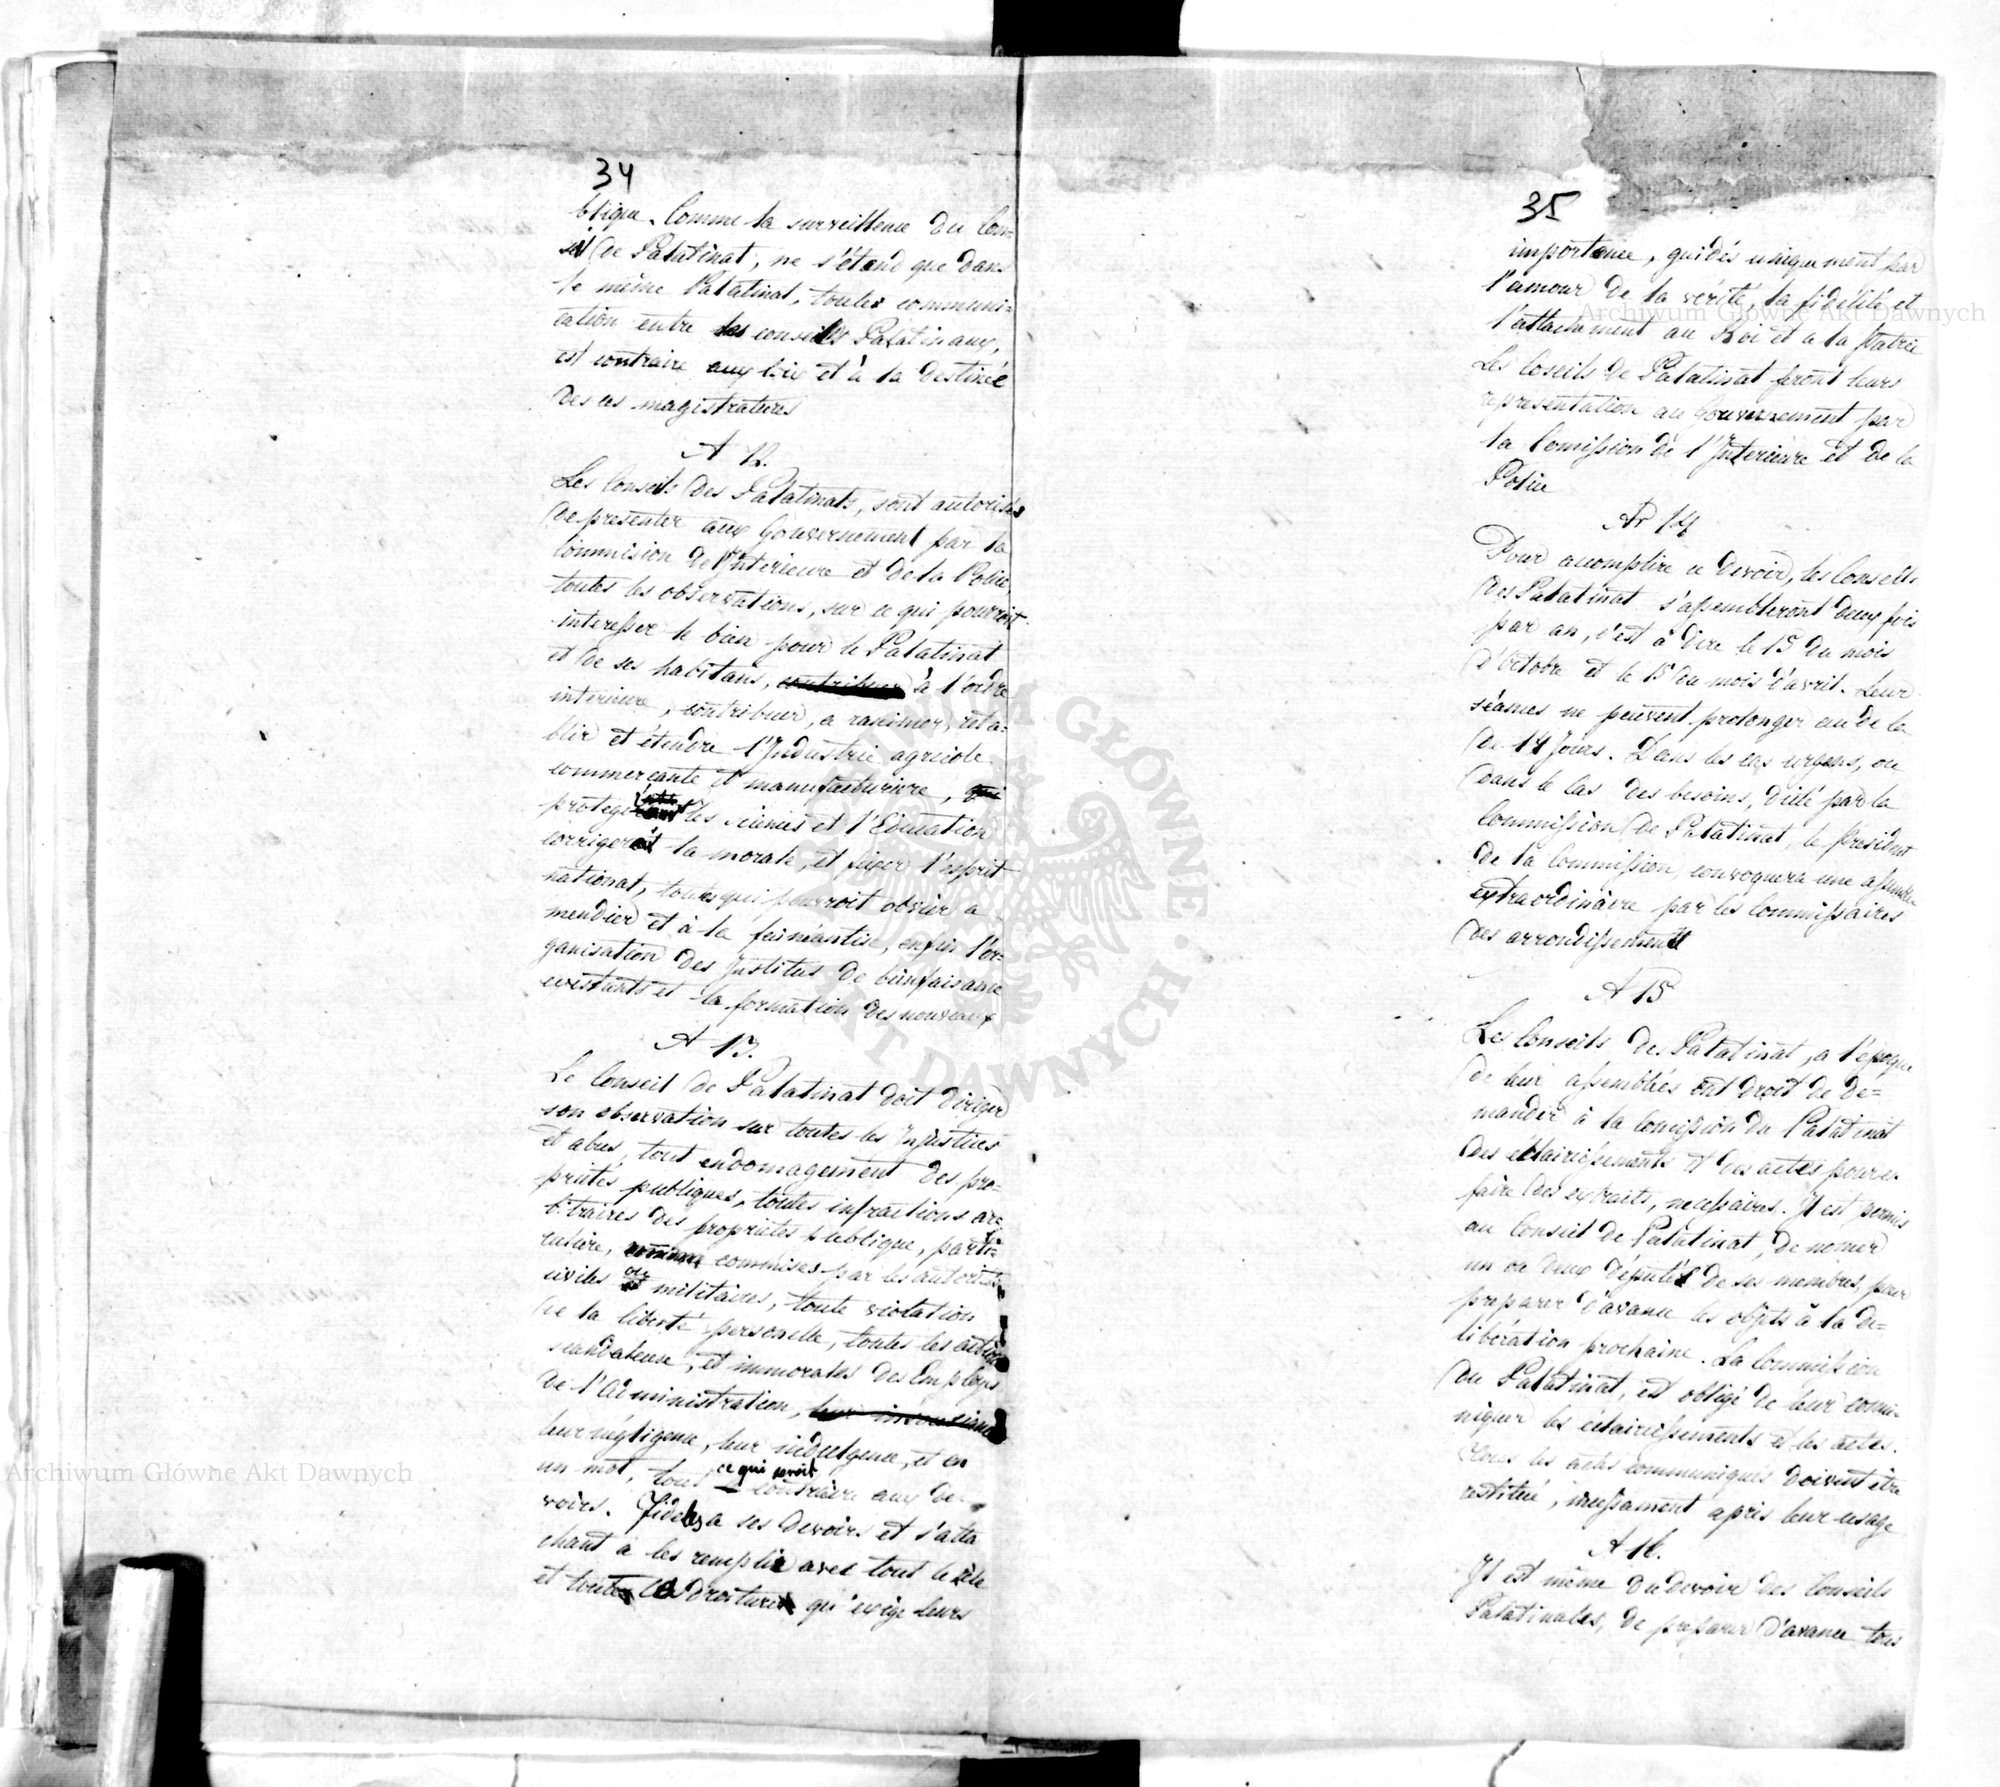 34
blique. Comme la surveillence du Con-
seil de Palatinat, ne s'étend que dans
le même Palatinat, toutes communi-
cation entre les conseils Palatinaux,
est contraire aux loix et à la destinée
des ces magistratures
A 12.
Les Conseils des Palatinats, sont autorisés
de presenter aux Gouvernement par la
Commision de l'Interieure et de la Police
toutes les observations, sur ce qui pourroit
interesser le bien pour le Palatinat
et de ses habitans, contribuer à l'ordre
interieure, contribuer, a raniner, reta-
blir et étendre l'Industrie agricole
commerçante et manufacturiere,
proteger les sciences et l'Education
corriger la morale, et fixer l'esprit
national, toutes qui pourroit obvier a
mendier et à la feinéantise, enfin l'or-
ganisation des Institus de bienfaisance
existants et la formation des nouveaux
A 13.
Le Conseil de Palatinat doit diriger
son observation sur toutes les Injustices
et abus, tout endomagement des pro-
priétés publiques, toutes infractions ar-
bitraires des proprietés publique, parti-
culiere, commises par les autorités
civiles ou militaires, toute violation
de la liberté personelle, toutes les action
scandaleuse, et immorales des Employs
de l'Administration, leur
leur négligence, leur indulgence, et en
un mot, tout ce qui seroit contraire aux de-
voirs. Fideles a ses devoirs et s'atta
chant a les remplir avec tout le zèle
et toute la droiture qu'exige leurs
35
importance, guidés uniquement par
l'amour de la vérité, la fidélité et
l'attachement au Roi et a la Patrie
Les Coseils de Palatinat feront leurs
representation au Gouvernement par
la Comission de l'Interieure et de la
Police
Ar 14
Pour acomplire ce devoir, les Conseils
des Palatinat s'assembleront deux fois
par an, c'est à dire le 15 du mois
d'Octobre et le 15 du mois d'avril. Leur
séances ne peuvent prolonger au de la
de 14 Jours. Dans les cas urgens, ou
dans le cas des besoins, dicté par la
Commission de Palatinat, le President
de la Commission, convoquera une assemblée
extraordinaire par les Commissaires
des arrondissements
A 15
Les Conseils des Palatinat, a l'époque
de leur assemblés ont droit de de-
mander à la Comission du Palatinat
des éclaircissements et des actes pour en
faire des extraits, necessaires. Il est permis
au Conseil de Palatinat, de nomer
un ou deux députés de ses membres, pour
preparer d'avance les objets à la de-
libération prochaine. La Commission
du Palatinat, est obligé de leur comu-
niquer les éclaircissements et les actes.
Tous les actes communiqués doivent être
restitué, incessament après leur usage
A 16.
Il est même du devoir des Conseils
Palatinales, de preparer d'avance tous
Archiwum Główne Akt Dawnych
Archiwum Główne Akt Dawnych